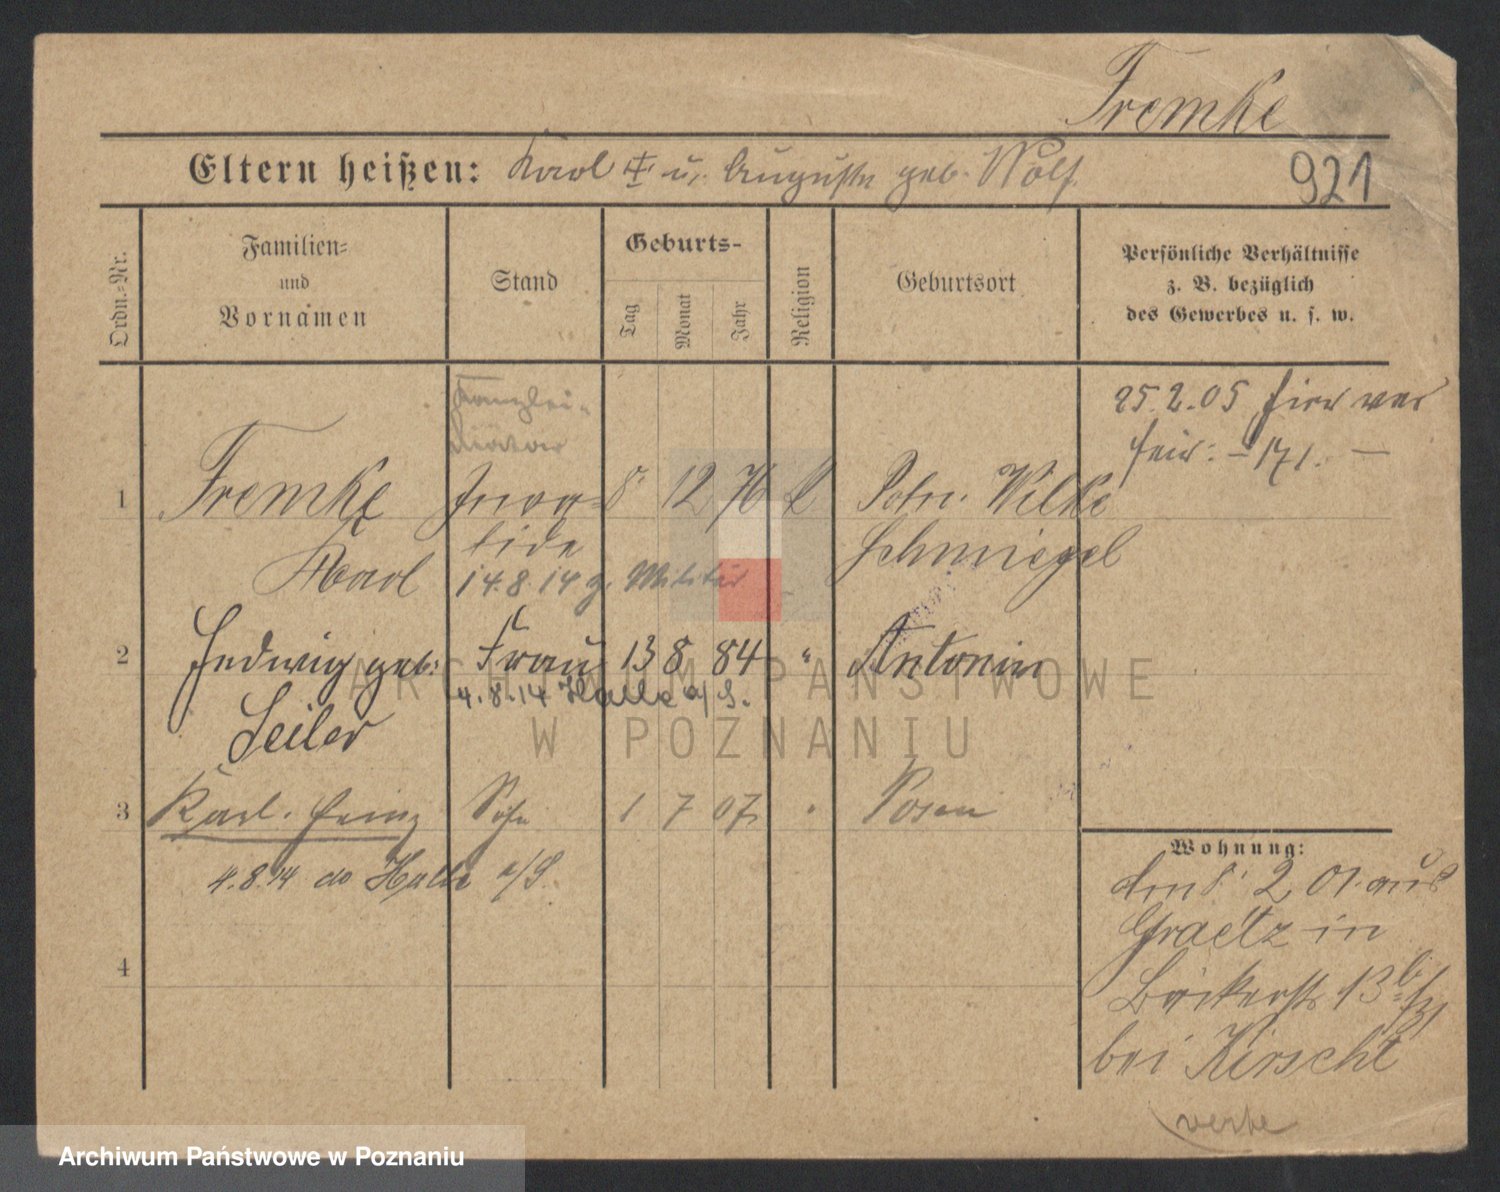 Fremke
Eltern heißen: Karl † u. Auguste geb. Wolf.
921
Ordn.-Nr.
Familien-
und
Vornamen
Stand
Geburts-
Tag
Monat
Jahr
Religion
Geburtsort
Persönliche Verhältnisse
z. B. bezüglich
des Gewerbes u. s. w.
Kanzlei-
diätar
25.2.05 hier
171. —
1 Fremke Inva- 8 12 76 Wilke
lide Schmiegel
Karl 14.8.14 z. Militär
2 Hedwig geb. Frau 13 8 84 " Antonin
4.8.14 Halle a/S.
Seiler
3 Karl-Heinz Sohn 1 7 07 " Posen
4.8.14 do Halle a/S.
4
Wohnung:
2 01 aus
Graetz in
Bäckerstr. 13b
bei Kirscht
ARCHIWUM PAŃSTWOWE
W POZNANIU
Archiwum Państwowe w Poznaniu